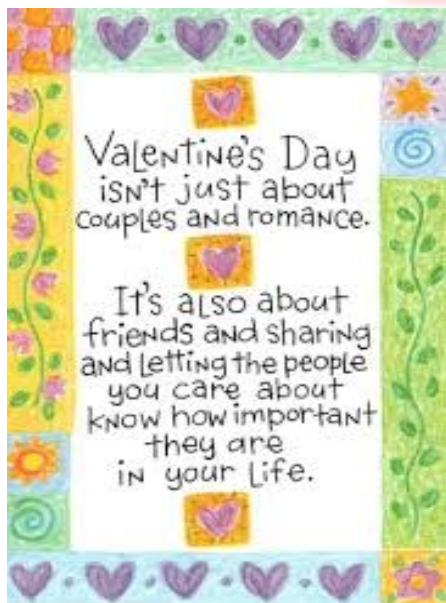 Valentine's Day
isn't just about
couples and romance.
It's also about
friends and sharing
and letting the people
you care about
know how important
they are
in your life.